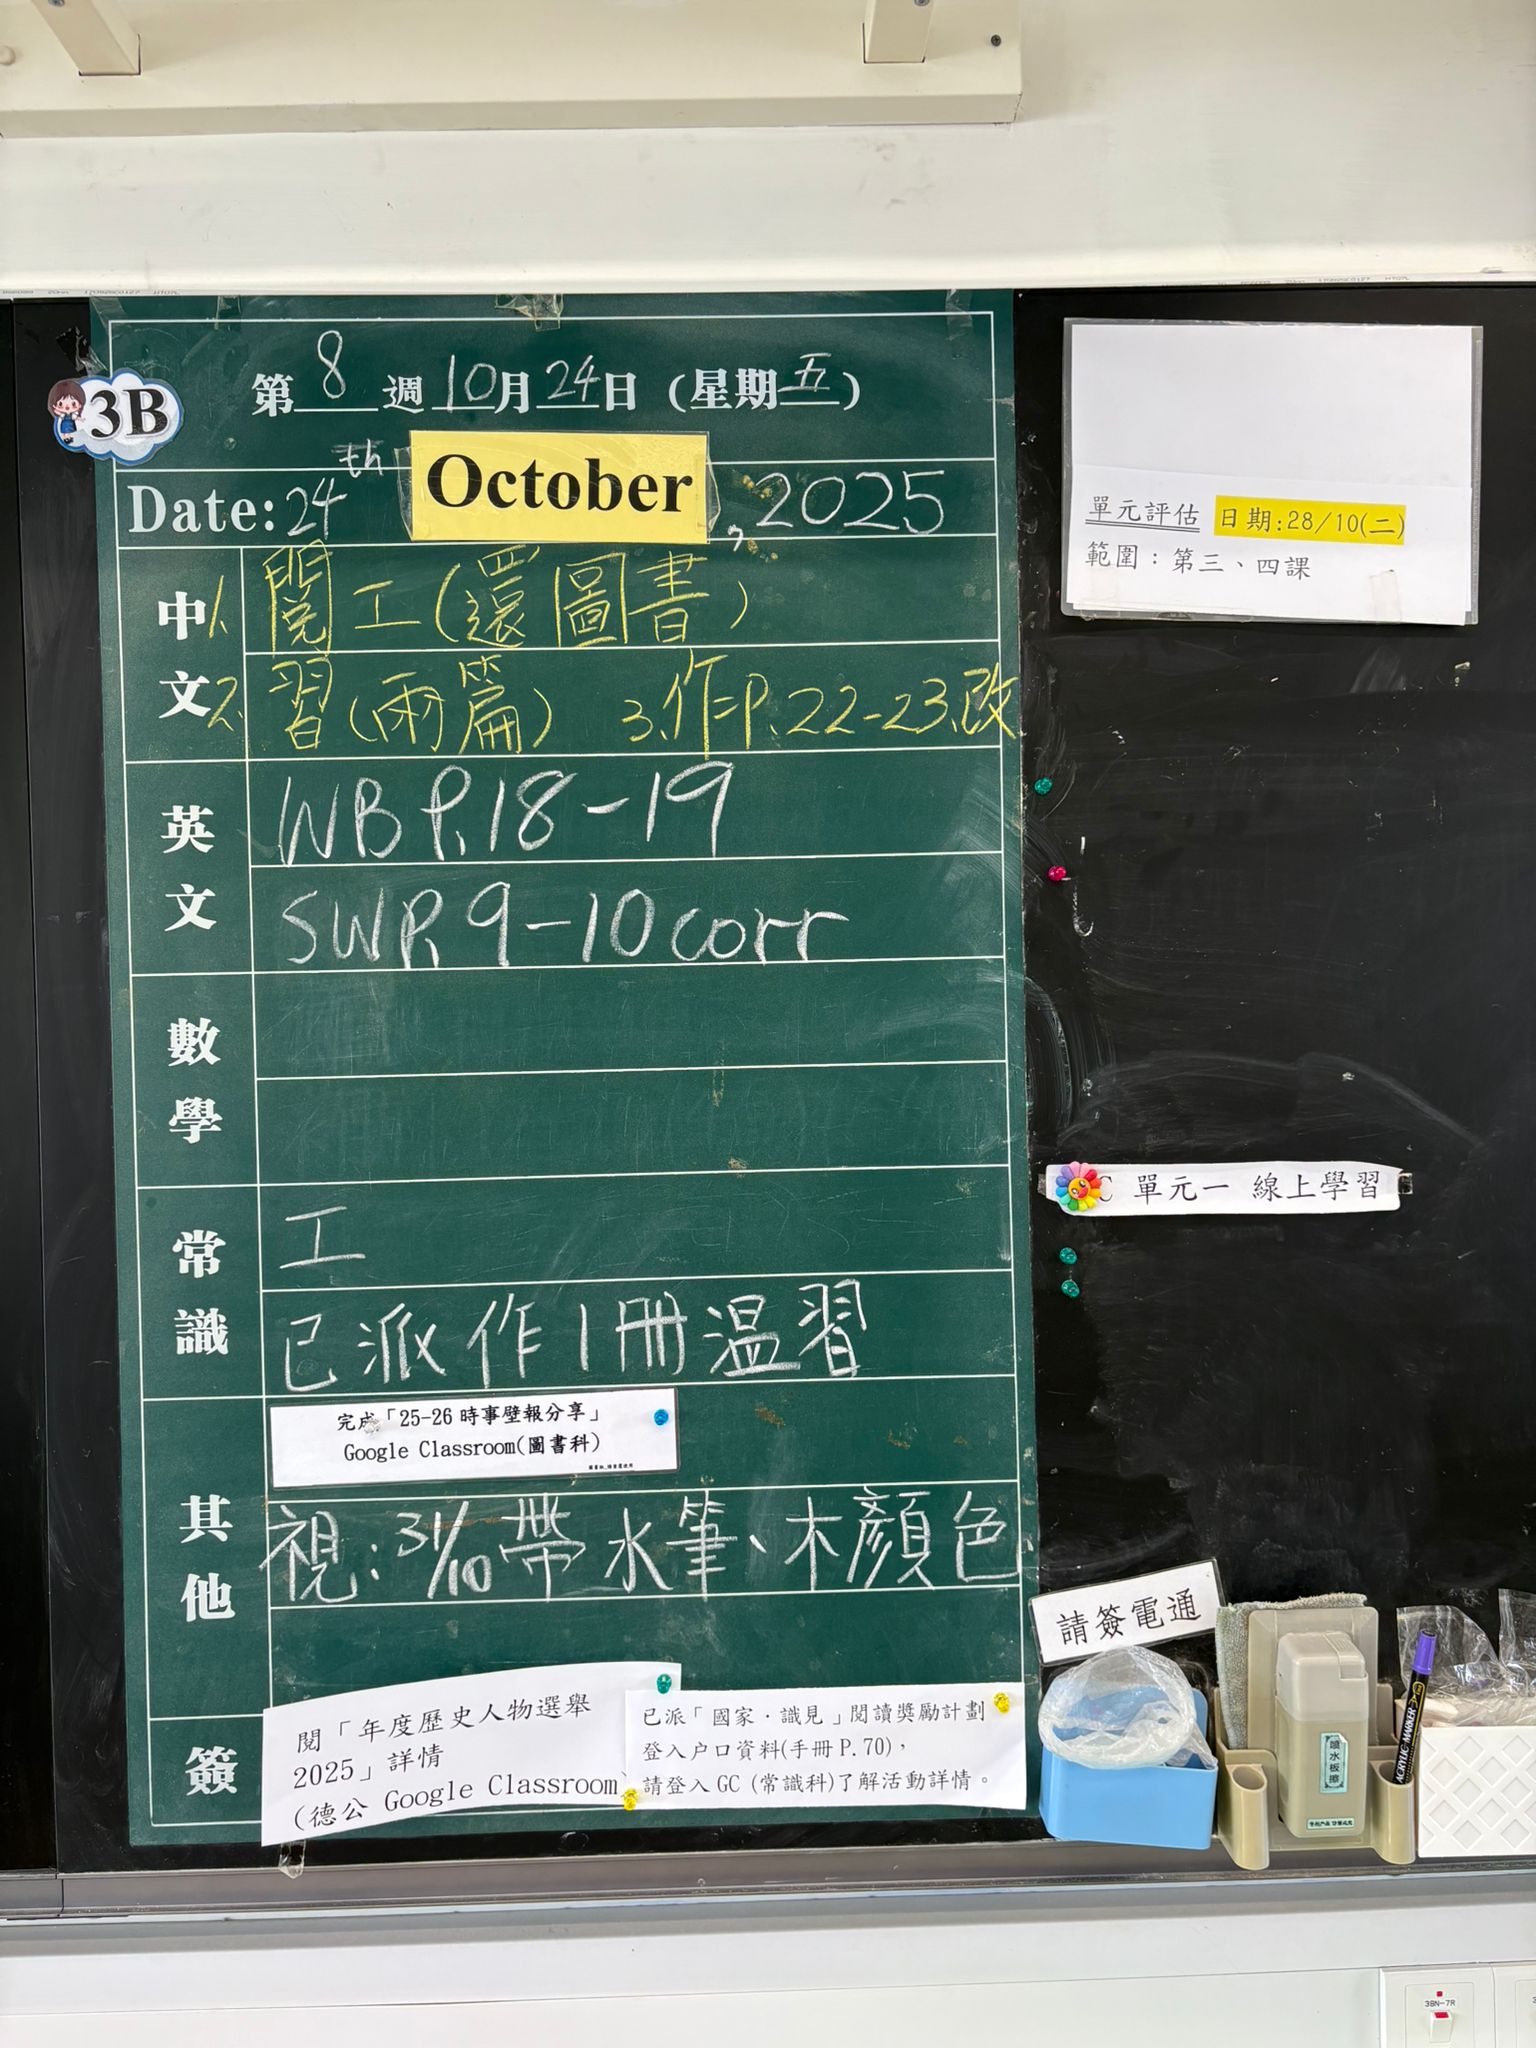 3B
第 8 週 10 月 24 日 (星期 五)
Date: 24th October, 2025
中文
1. 閱工(還圖書)
2. 習(兩篇) 3.作P.22-23改
英文
WB P.18-19
SWP.9-10 corr
數學
常識
工
已派作1冊温習
其他
完成「25-26 時事壁報分享」
Google Classroom(圖書科)
視：31/10帶水筆、木顏色
簽
閱「年度歷史人物選舉
2025」詳情
(德公 Google Classroom
已派「國家．識見」閱讀獎勵計劃
登入户口資料(手冊 P.70)，
請登入 GC (常識科)了解活動詳情。
單元評估 日期:28/10(二)
範圍：第三、四課
單元一 線上學習
請簽電通
噴水板擦
ACRYLIC MARKER
38N-7R